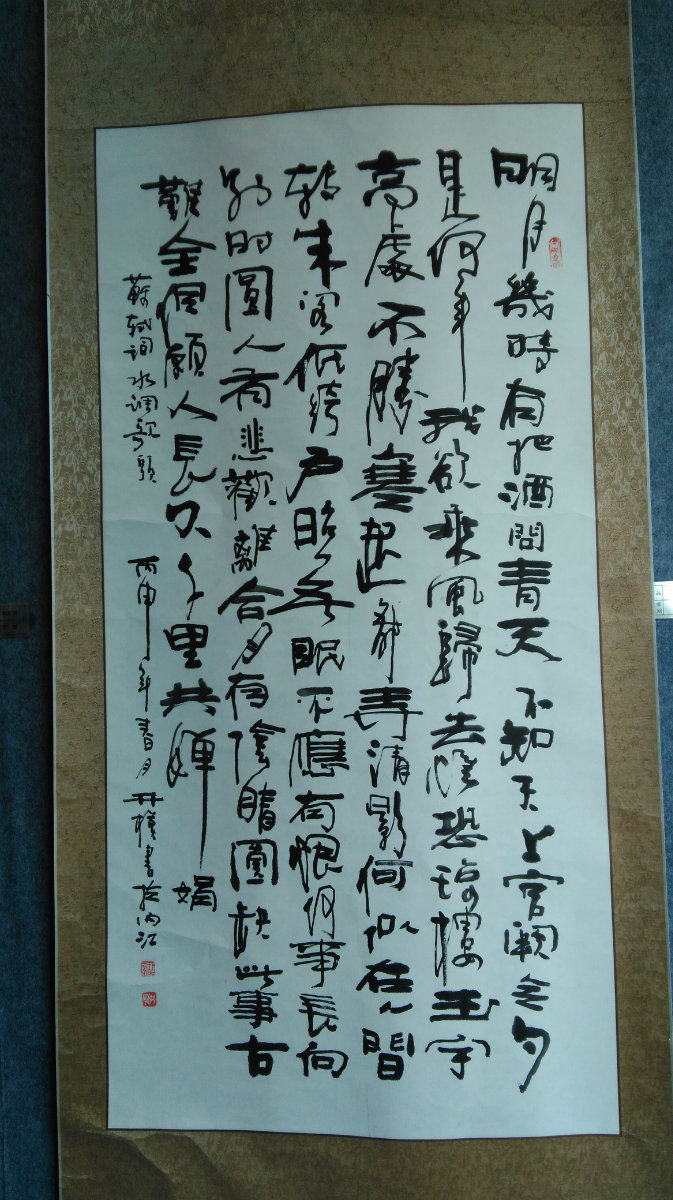 明月幾時有把酒問青天不知天上宫闕今夕
是何年我欲乘風歸去惟恐琼樓玉宇
高處不勝寒起舞弄清影何似在人間
转朱阁低绮户照无眠不應有恨何事長向
别时圓人有悲歡離合月有陰晴圓缺此事古
難全但願人長久千里共婵娟
蘇轼词水调歌頭 丙申年春月 書於内江